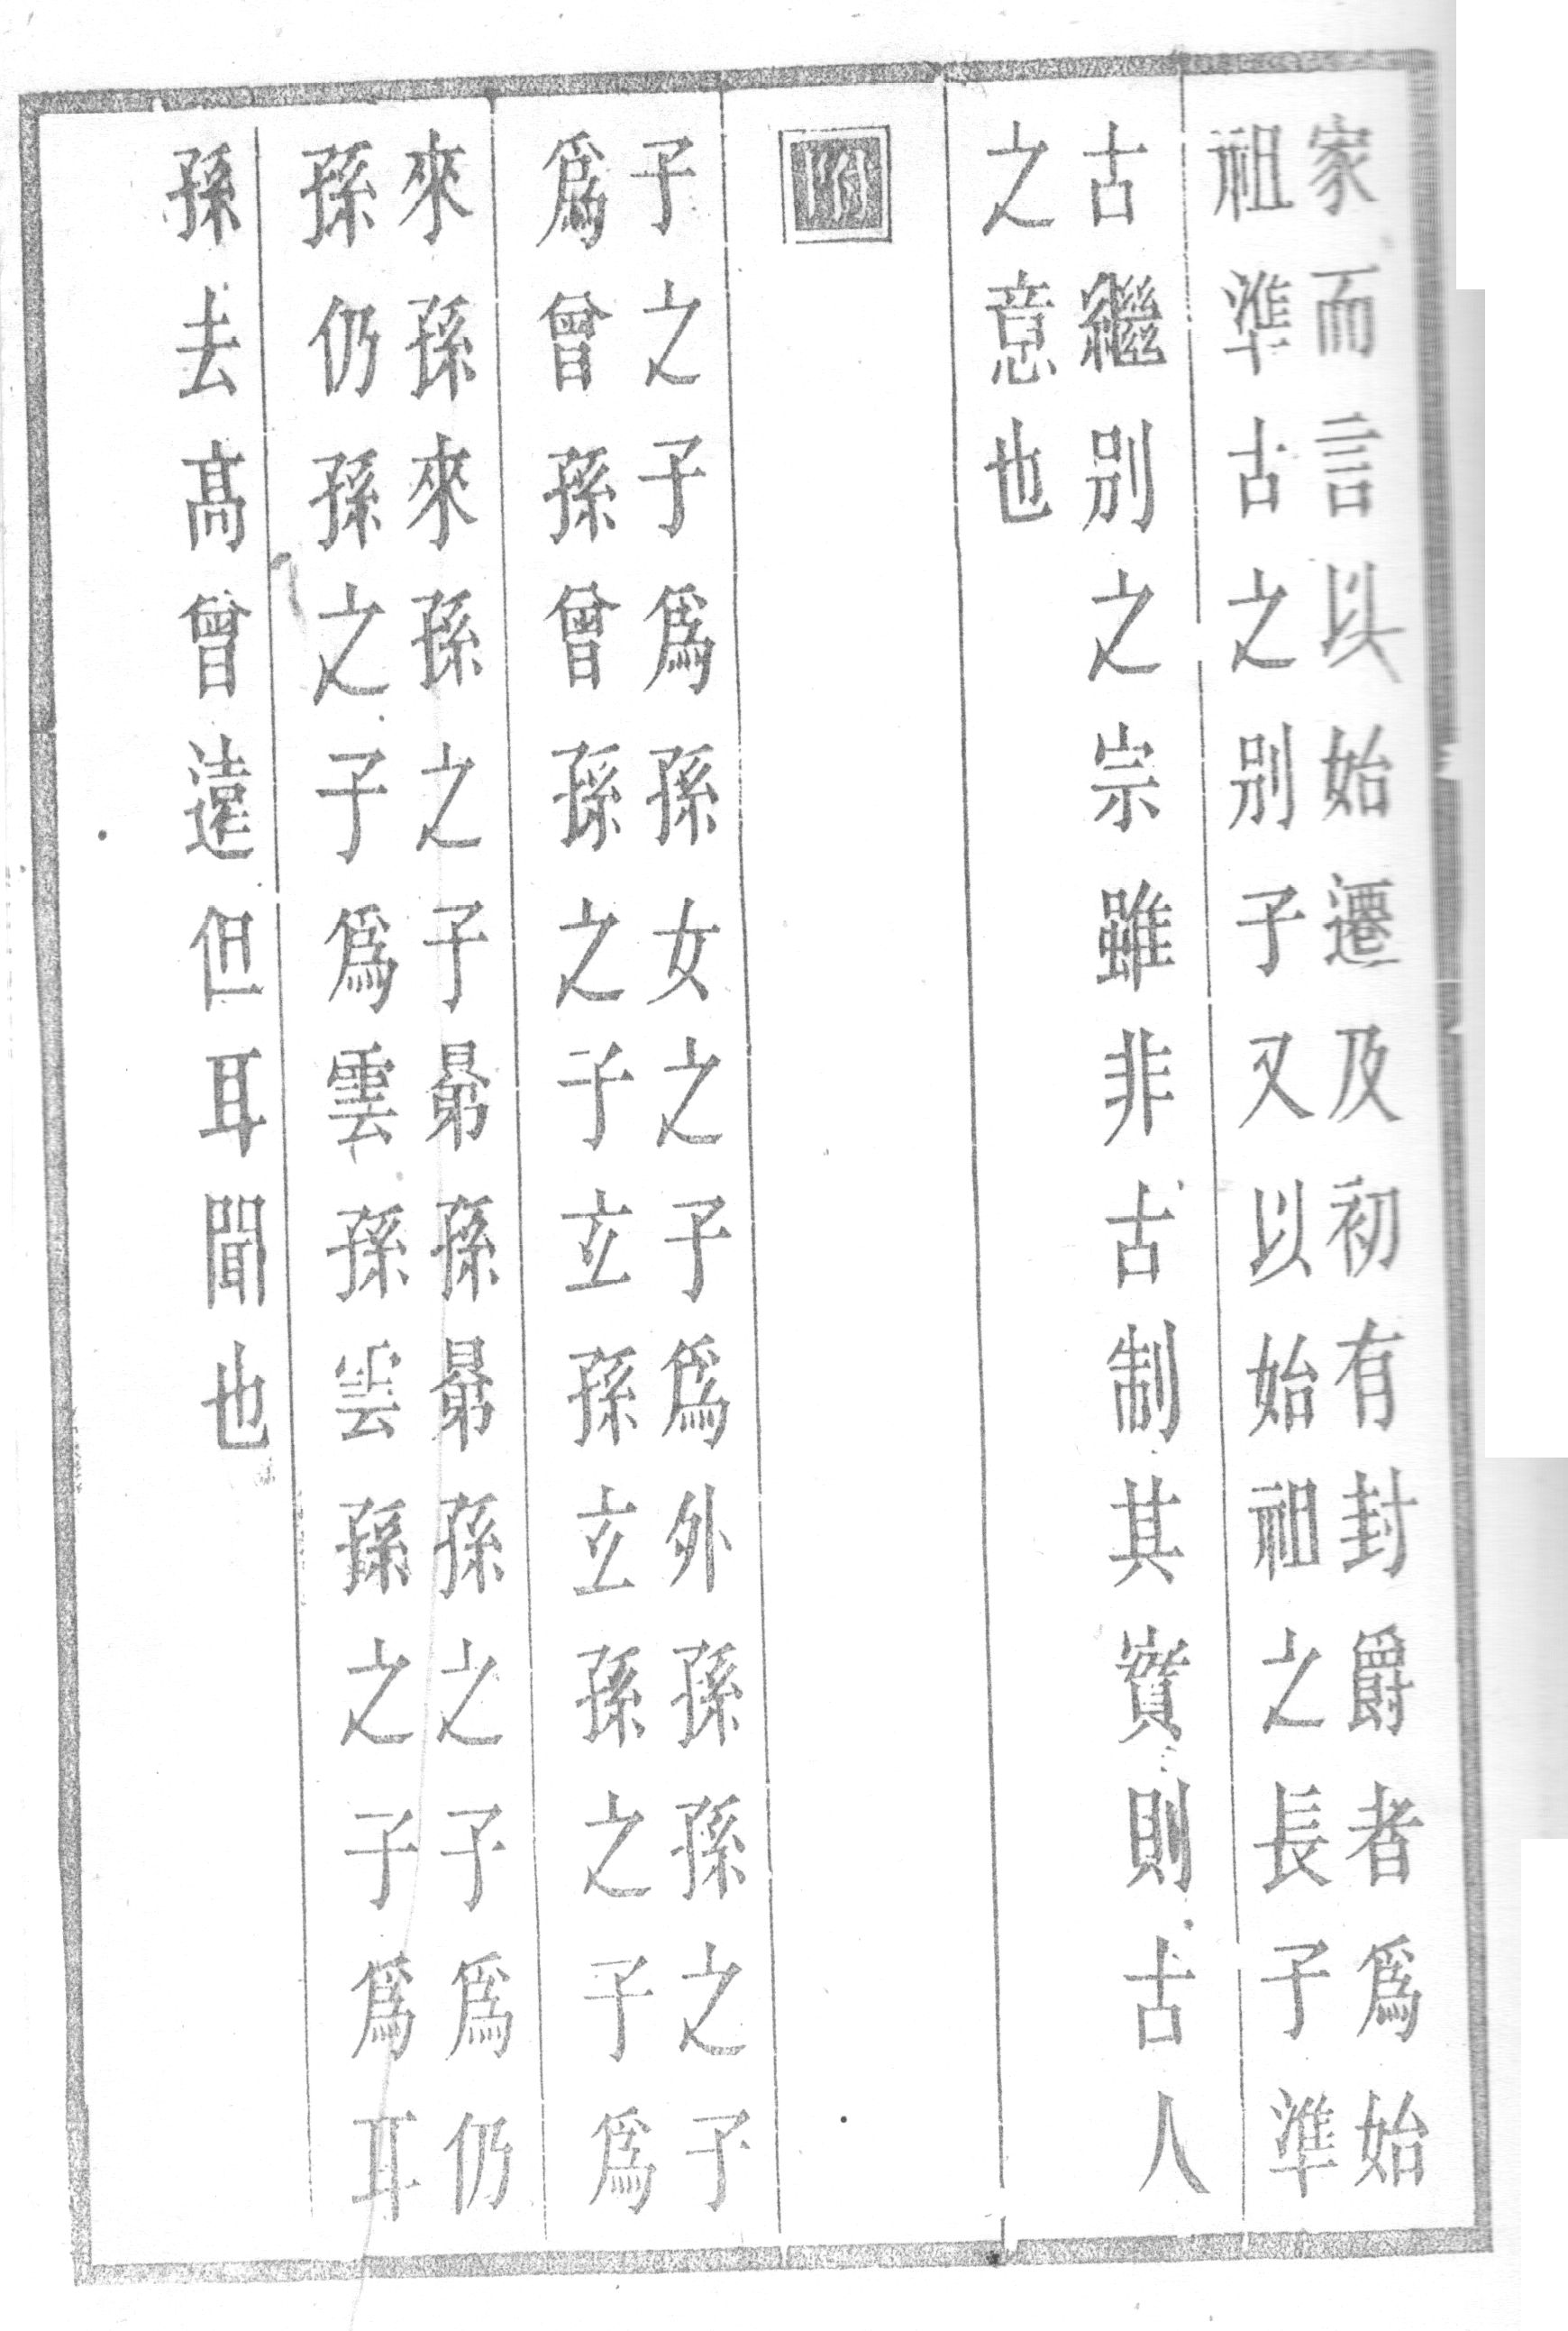 家而言以始遷及初有封爵者爲始
祖準古之别子又以始祖之長子準
古繼别之宗雖非古制其實則古人
之意也
附
子之子爲孫女之子爲外孫孫之子
爲曾孫曾孫之子玄孫玄孫之子爲
來孫來孫之子晜孫晜孫之子爲仍
孫仍孫之子爲雲孫雲孫之子爲耳
孫去高曾遠但耳聞也